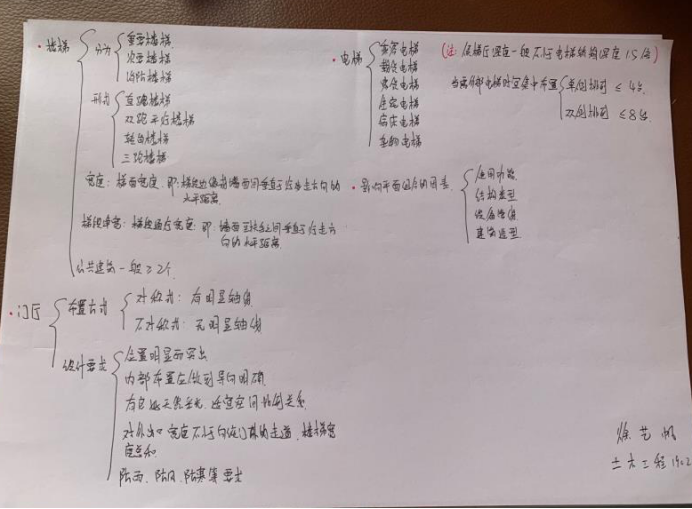 ·楼梯
分为
主要楼梯
次要楼梯
消防楼梯
形式
直跑楼梯
双跑平行楼梯
转角楼梯
三跑楼梯
宽度：梯面宽度，即：梯段边缘与墙面间垂直于行走方向的
水平距离
梯段净宽：梯段通行宽度：即：墙面至扶手之间垂直于行走方
向的水平距离
公共建筑一般≥2个
·电梯
乘客电梯
载货电梯
客货电梯
住宅电梯
病床电梯
车用电梯
(注：候梯厅深度一般不小于电梯轿厢深度1.5倍)
当两部电梯时宜集中布置
单侧排列≤4台
双侧排列≤8台
·影响平面组合的因素
使用功能
结构类型
设备管线
建筑造型
·门厅
布置方式
对称式：有明显轴线
不对称式：无明显轴线
设计要求
位置明显而突出
内部布置应做到导向明确
有良好天然采光，适宜空间比例关系
对外出口宽度不小于向该门厅的走道、楼梯宽
度总和
防雨、防风、防寒等要求
徐艺
土木工程1902